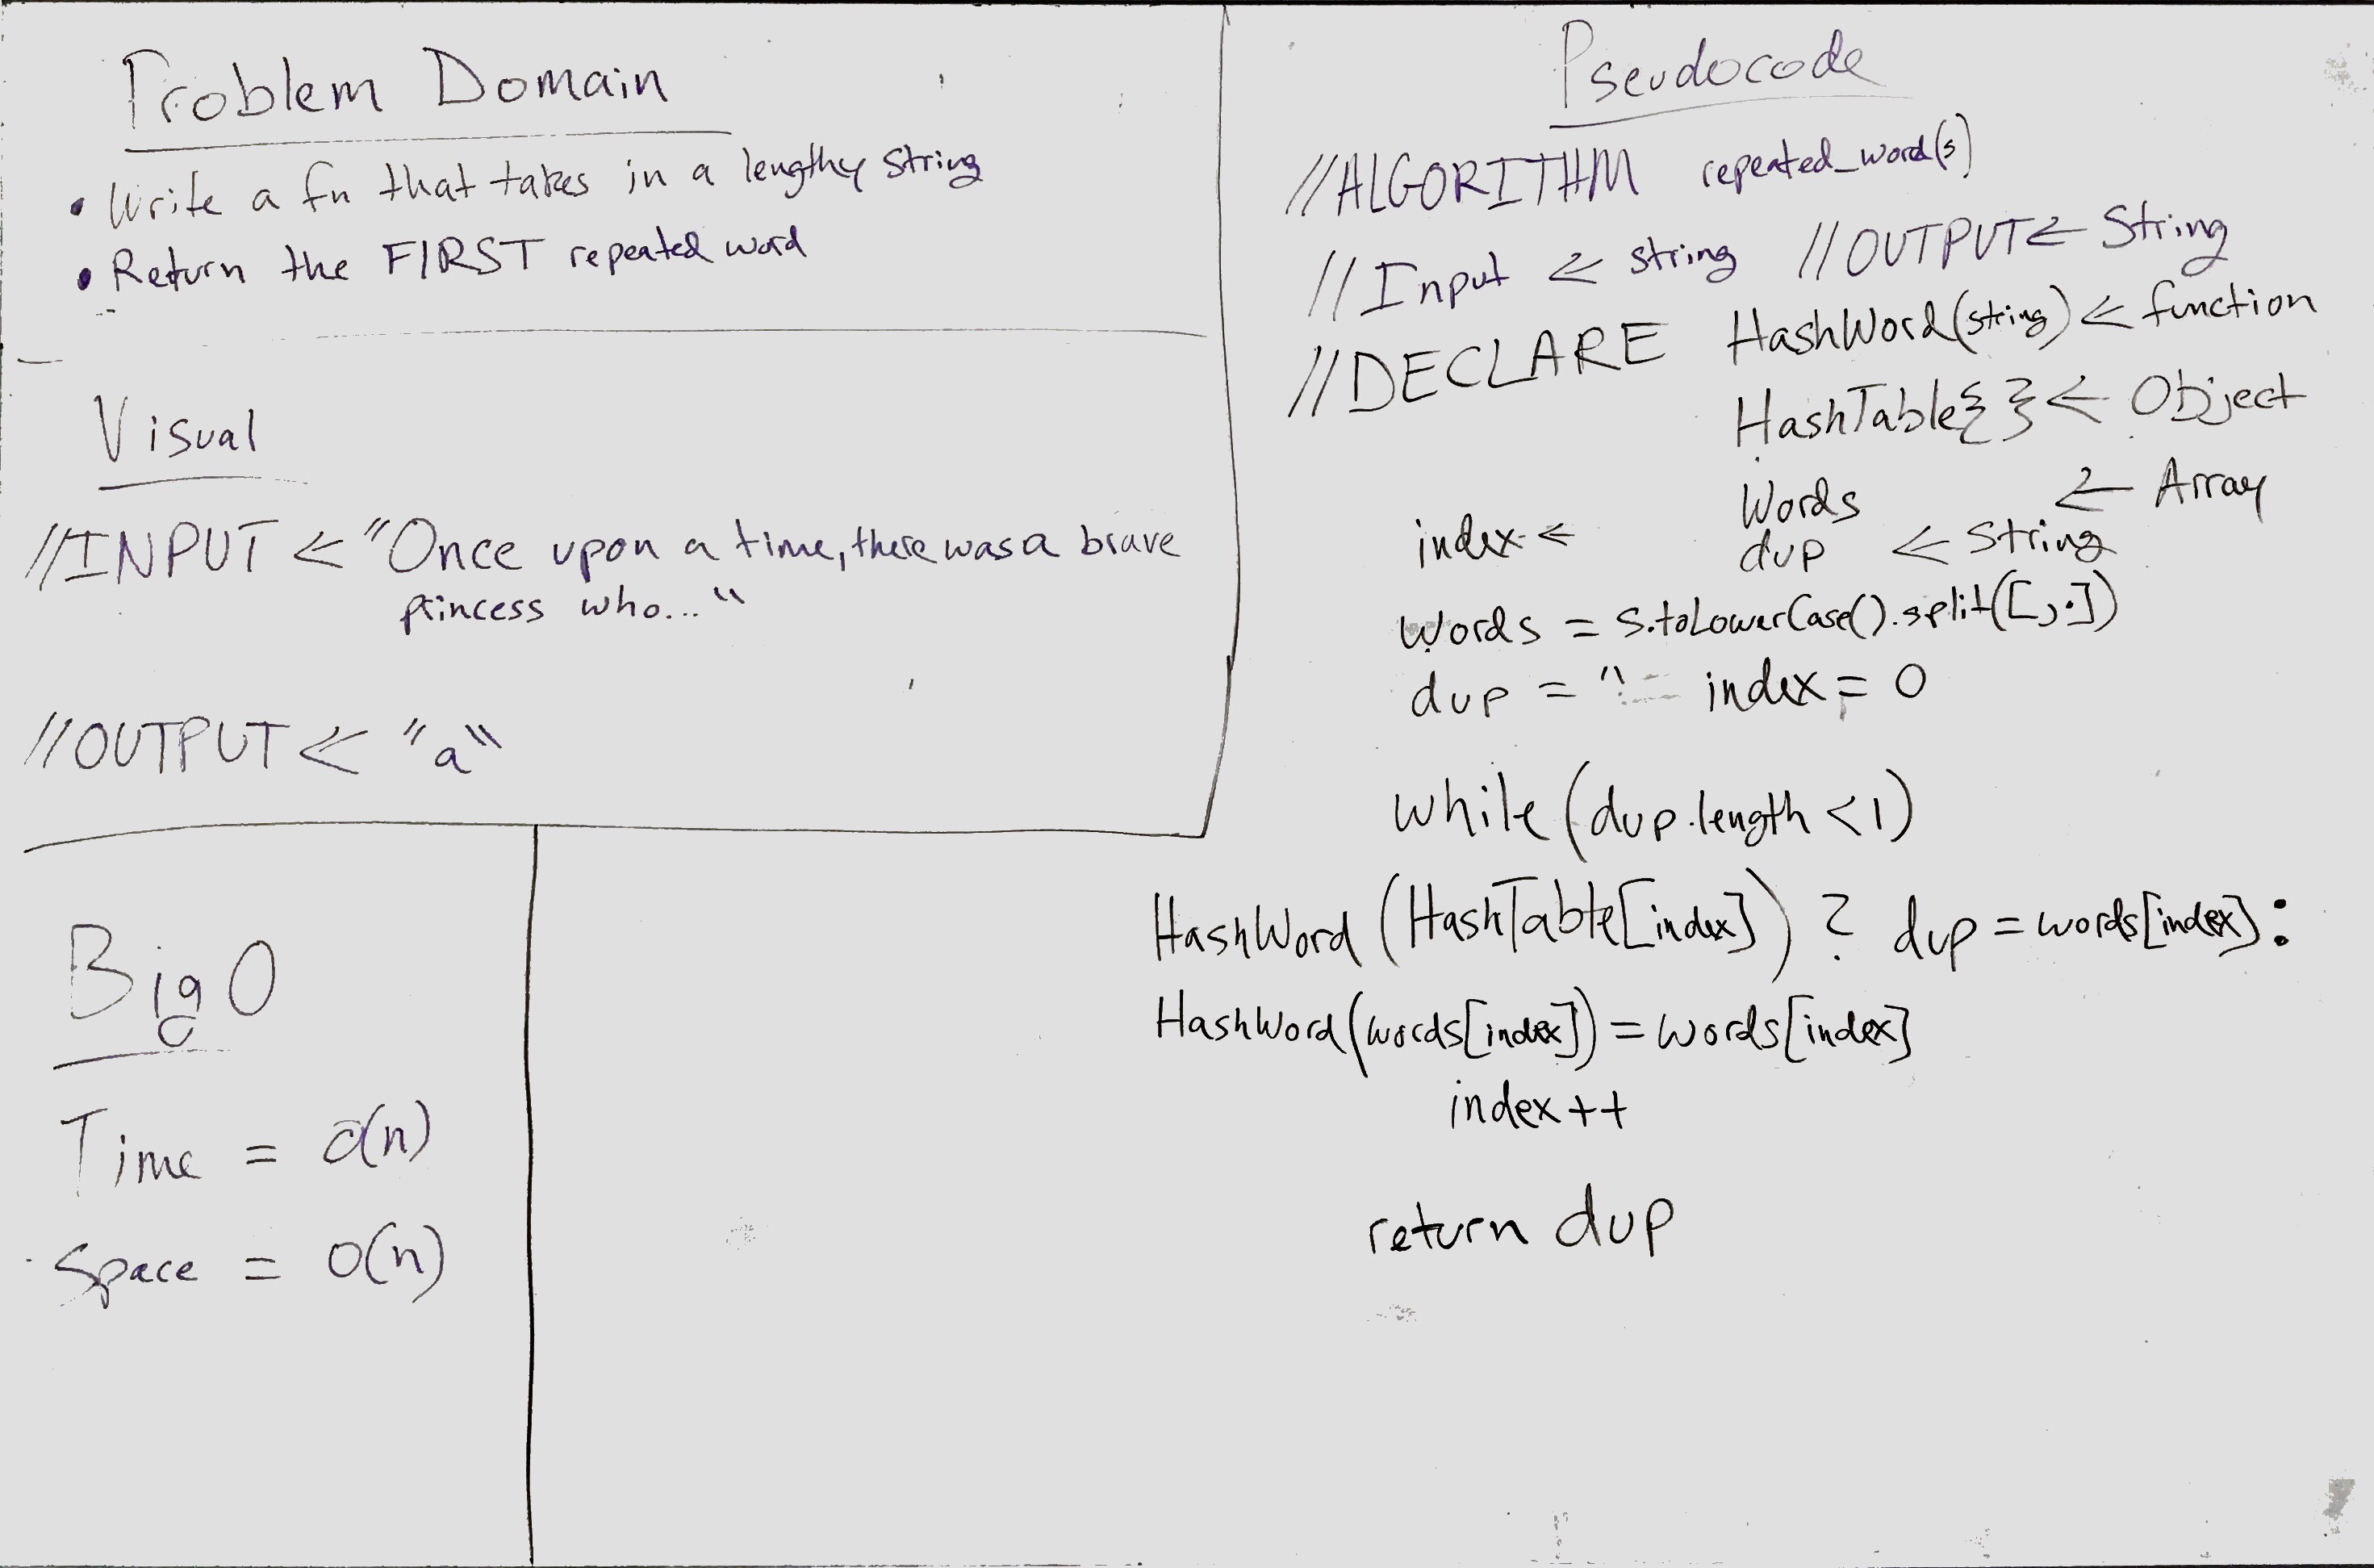 Problem Domain
• Write a fn that takes in a lengthy string
• Return the FIRST repeated word
Visual
//INPUT <= "Once upon a time, there was a brave
princess who..."
//OUTPUT <= "a"
Big O
Time = O(n)
Space = O(n)
Pseudocode
//ALGORITHM repeated_word(s)
//Input <= string //OUTPUT <= String
//DECLARE HashWord(string) <= function
HashTable{ } <= Object
Words <= Array
index <= dup <= String
words = s.toLowerCase().split([,.])
dup = " index = 0
while (dup.length < 1)
HashWord (HashTable[index]) ? dup = words[index] :
HashWord(words[index]) = words[index]
index ++
return dup